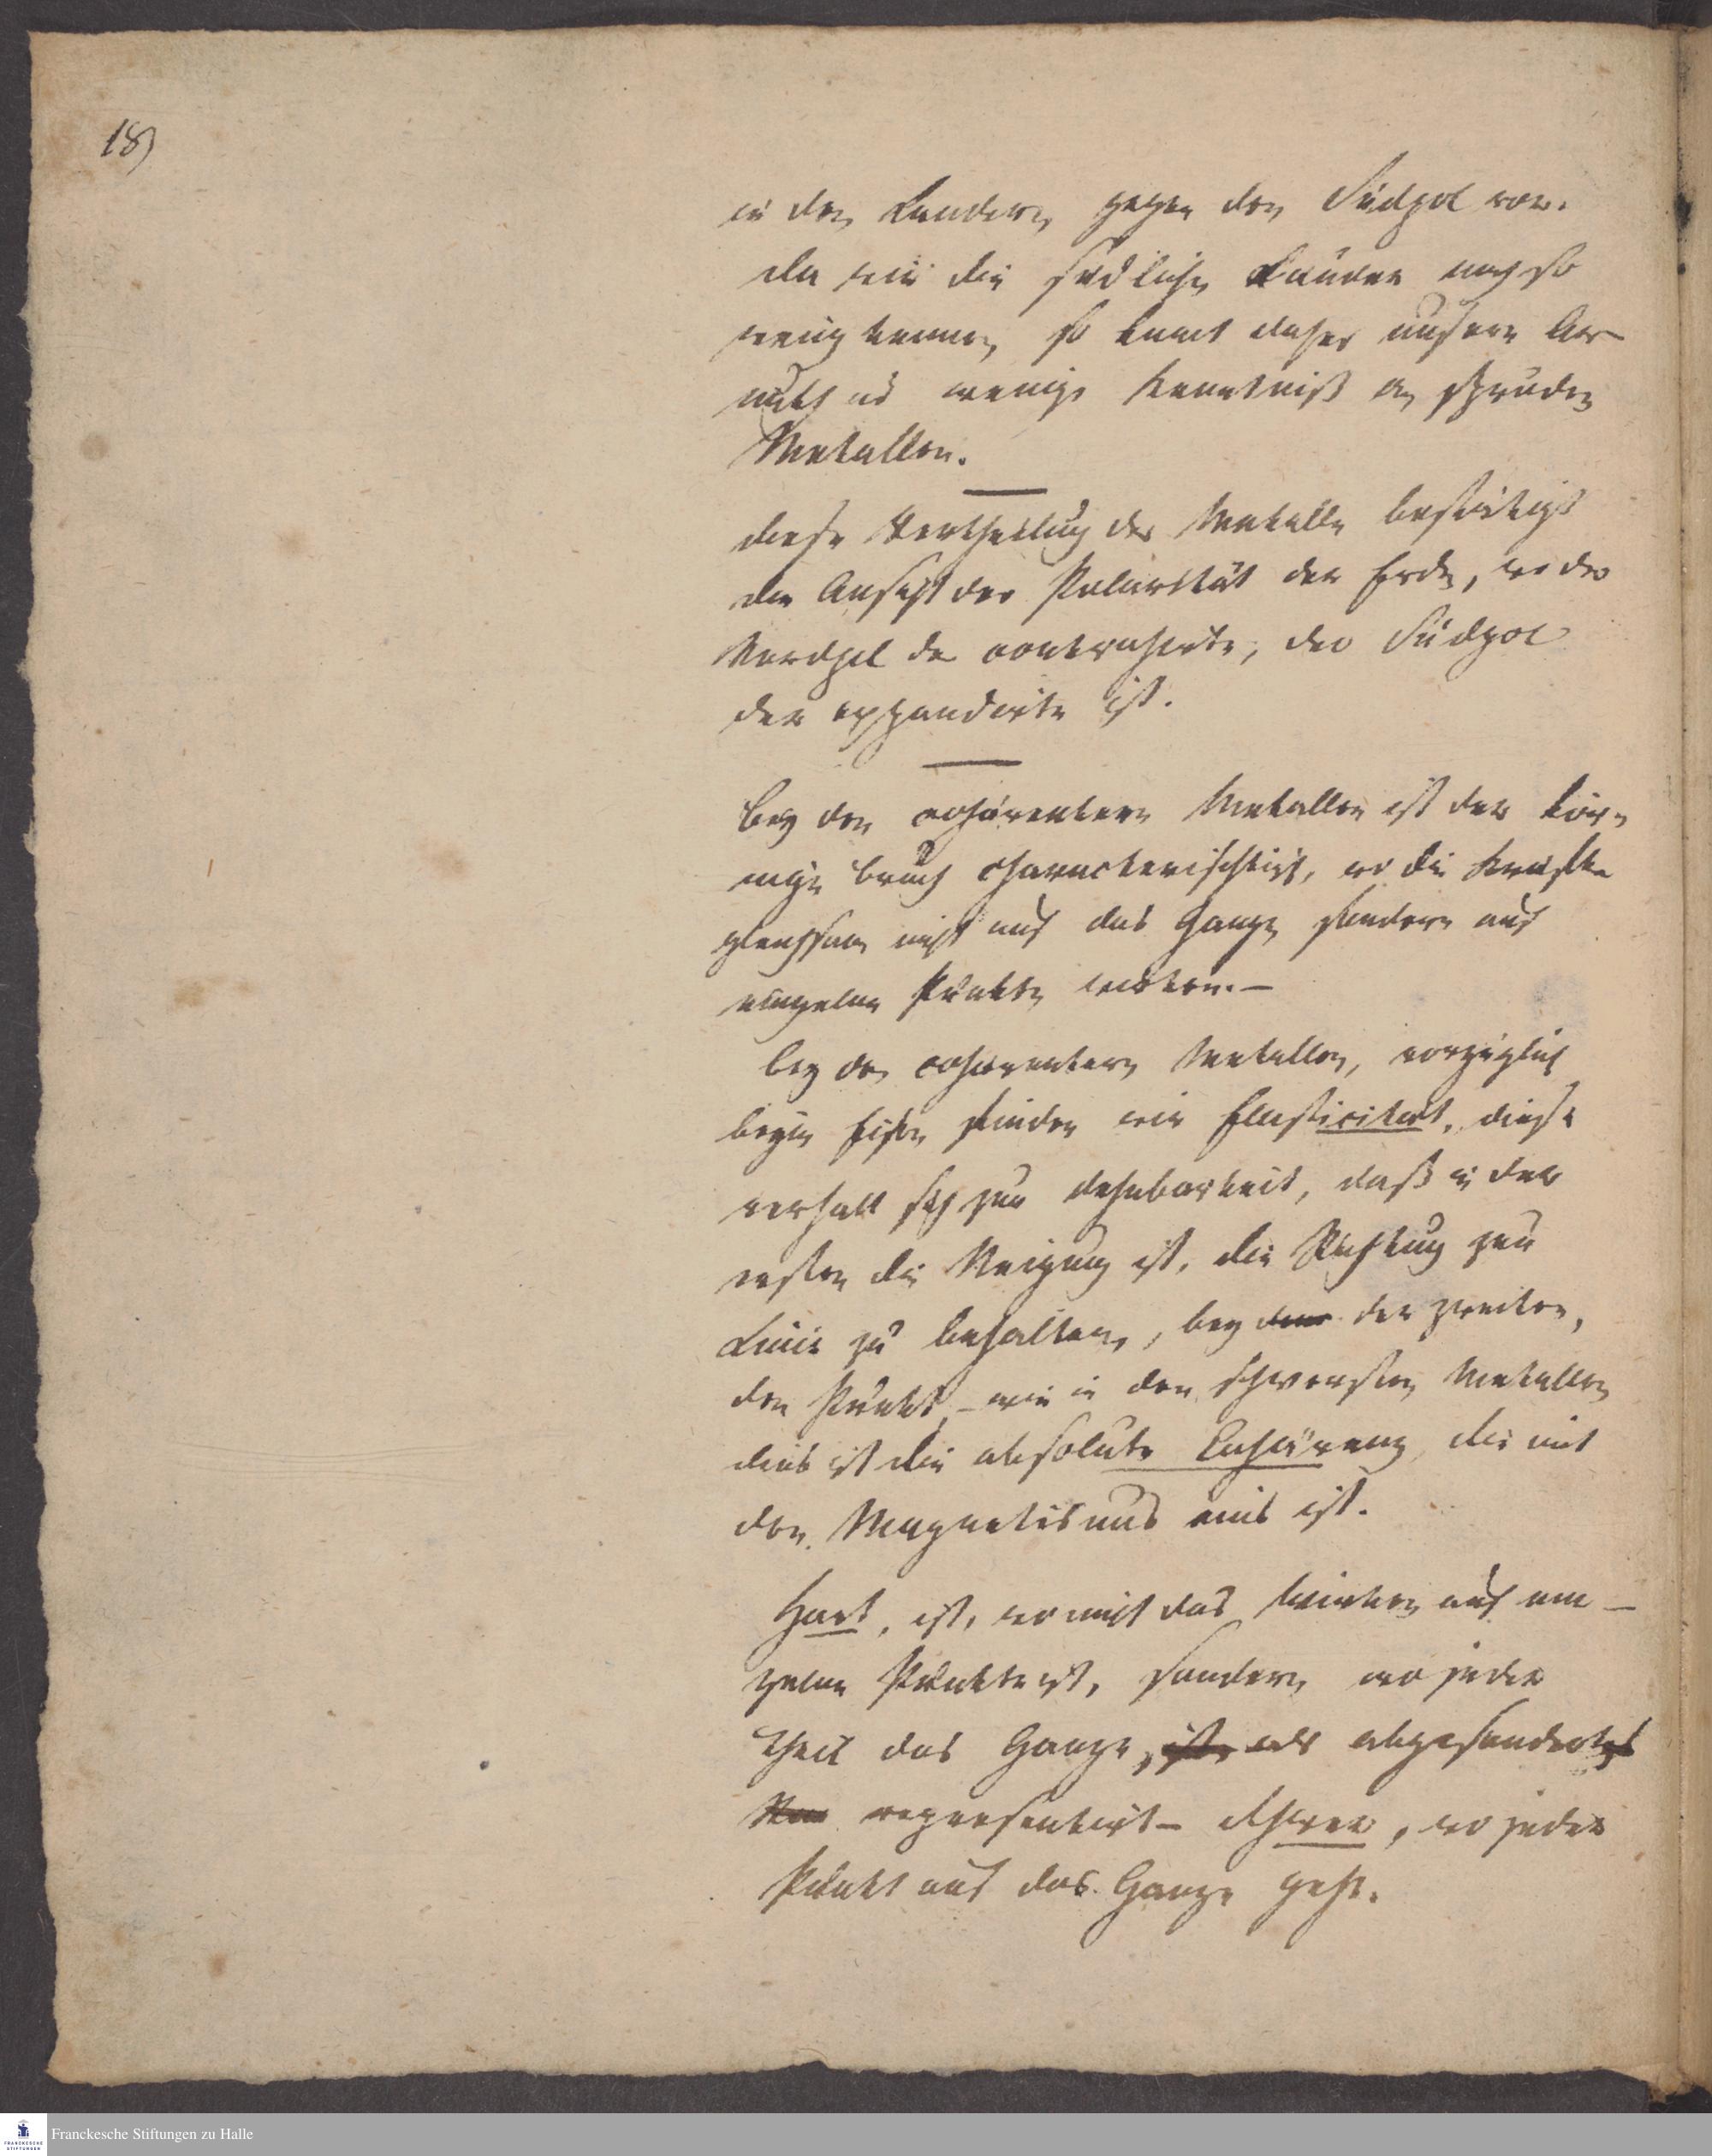 18)
in den Ländern gegen den Südpol vor.
da wir die südlichen Länder noch so
wenig kennen, so kömt daher unsere Ar-
muth und wenige Kenntniß an spröden
Metallen.
diese Vertheilung der Metalle bestätigt
die Ansicht der Polarität der Erde, wo der
Nordpol der contrahirte, der Südpol
der expandirte ist.
Bey den cohärentern Metallen ist der kör-
nige Bruch characterischtisch, wo die Kräfte
gleichsam nicht auf das Ganze sondern auf
einzelne Punkte wirken. –
bey den cohärentern Metallen, vorzüglich
beym Eisen finden wir Elasticitaet, diese
verhält sich zur Dehnbarkeit, daß in der
ersten die Neigung ist, die Richtung zur
Linie zu behalten, bey der zweiten,
den Punkt – wie in den schwersten Metallen
dies ist die absolute Cohärenz, die mit
den Magnetismus eins ist.
Hart, ist, wo nicht das Wirken auf ein-
zelne Punkte ist, sondern wo jeder
Theil das Ganze, als abgesondert
representirt – Schwer, wo jeder
Punkt auf das Ganze geht.
Franckesche Stiftungen zu Halle
FRANCKESCHE
STIFTUNGEN